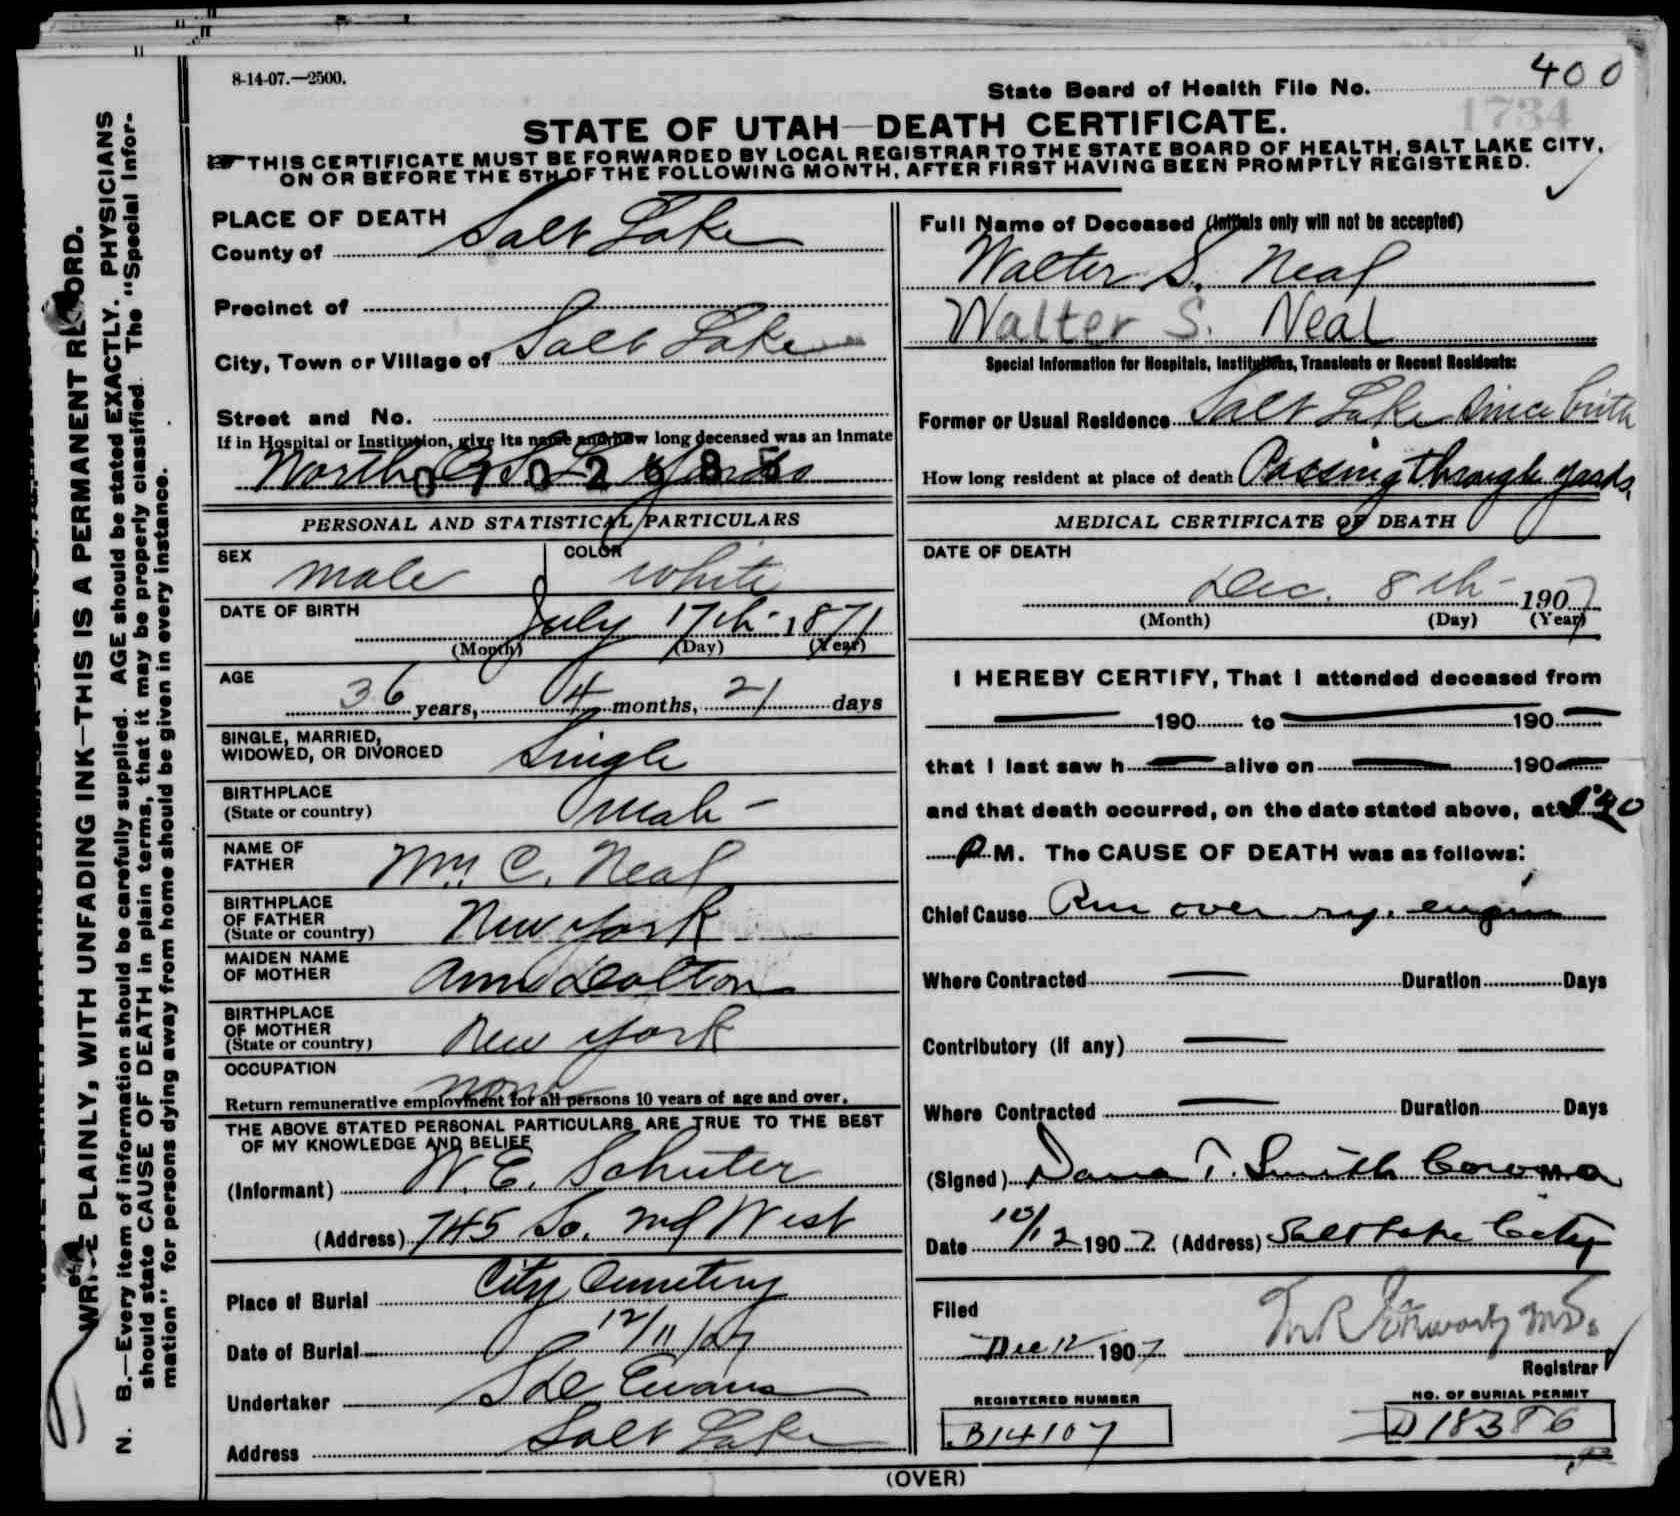 8-14-07.—2500.
State Board of Health File No. 400
1734
STATE OF UTAH—DEATH CERTIFICATE.
THIS CERTIFICATE MUST BE FORWARDED BY LOCAL REGISTRAR TO THE STATE BOARD OF HEALTH, SALT LAKE CITY,
ON OR BEFORE THE 5TH OF THE FOLLOWING MONTH, AFTER FIRST HAVING BEEN PROMPTLY REGISTERED.
WRITE PLAINLY, WITH UNFADING INK—THIS IS A PERMANENT RECORD.
N. B.—Every item of information should be carefully supplied. AGE should be stated EXACTLY. PHYSICIANS
should state CAUSE OF DEATH in plain terms, that it may be properly classified. The "Special Infor-
mation" for persons dying away from home should be given in every instance.
PLACE OF DEATH
County of Salt Lake
Precinct of
City, Town or Village of Salt Lake
Street and No.
If in Hospital or Institution, give its name and how long deceased was an Inmate
North O.S.L. Yards
PERSONAL AND STATISTICAL PARTICULARS
SEX male COLOR white
DATE OF BIRTH July 17th 1871
(Month) (Day) (Year)
AGE
36 years, 4 months, 21 days
SINGLE, MARRIED,
WIDOWED, OR DIVORCED Single
BIRTHPLACE
(State or country)
NAME OF
FATHER Wm. C. Neal
BIRTHPLACE
OF FATHER
(State or country) New York
MAIDEN NAME
OF MOTHER Ann Dalton
BIRTHPLACE
OF MOTHER
(State or country) New York
OCCUPATION none
Return remunerative employment for all persons 10 years of age and over.
THE ABOVE STATED PERSONAL PARTICULARS ARE TRUE TO THE BEST
OF MY KNOWLEDGE AND BELIEF
(Informant) W. E. Schuter
(Address) 745 So. 2nd West
Place of Burial City Cemetery
Date of Burial 12/11/07
Undertaker Evans
Address Salt Lake
Full Name of Deceased (Initials only will not be accepted)
Walter S. Neal
Walter S. Neal
Special Information for Hospitals, Institutions, Transients or Recent Residents:
Former or Usual Residence Salt Lake Since birth
How long resident at place of death Passing through yards.
MEDICAL CERTIFICATE OF DEATH
DATE OF DEATH
Dec. 8th 1907
(Month) (Day) (Year)
I HEREBY CERTIFY, That I attended deceased from
190 to 190
that I last saw h alive on 190
and that death occurred, on the date stated above, at
P M. The CAUSE OF DEATH was as follows:
Chief Cause Run over ry. engine
Where Contracted — Duration Days
Contributory (if any) —
Where Contracted — Duration Days
(Signed) Dana T. Smith M.D.
Date 1907 (Address) Salt Lake City
Filed
Dec 12 1907
Registrar
REGISTERED NUMBER
B14107
NO. OF BURIAL PERMIT
D 18386
(OVER)